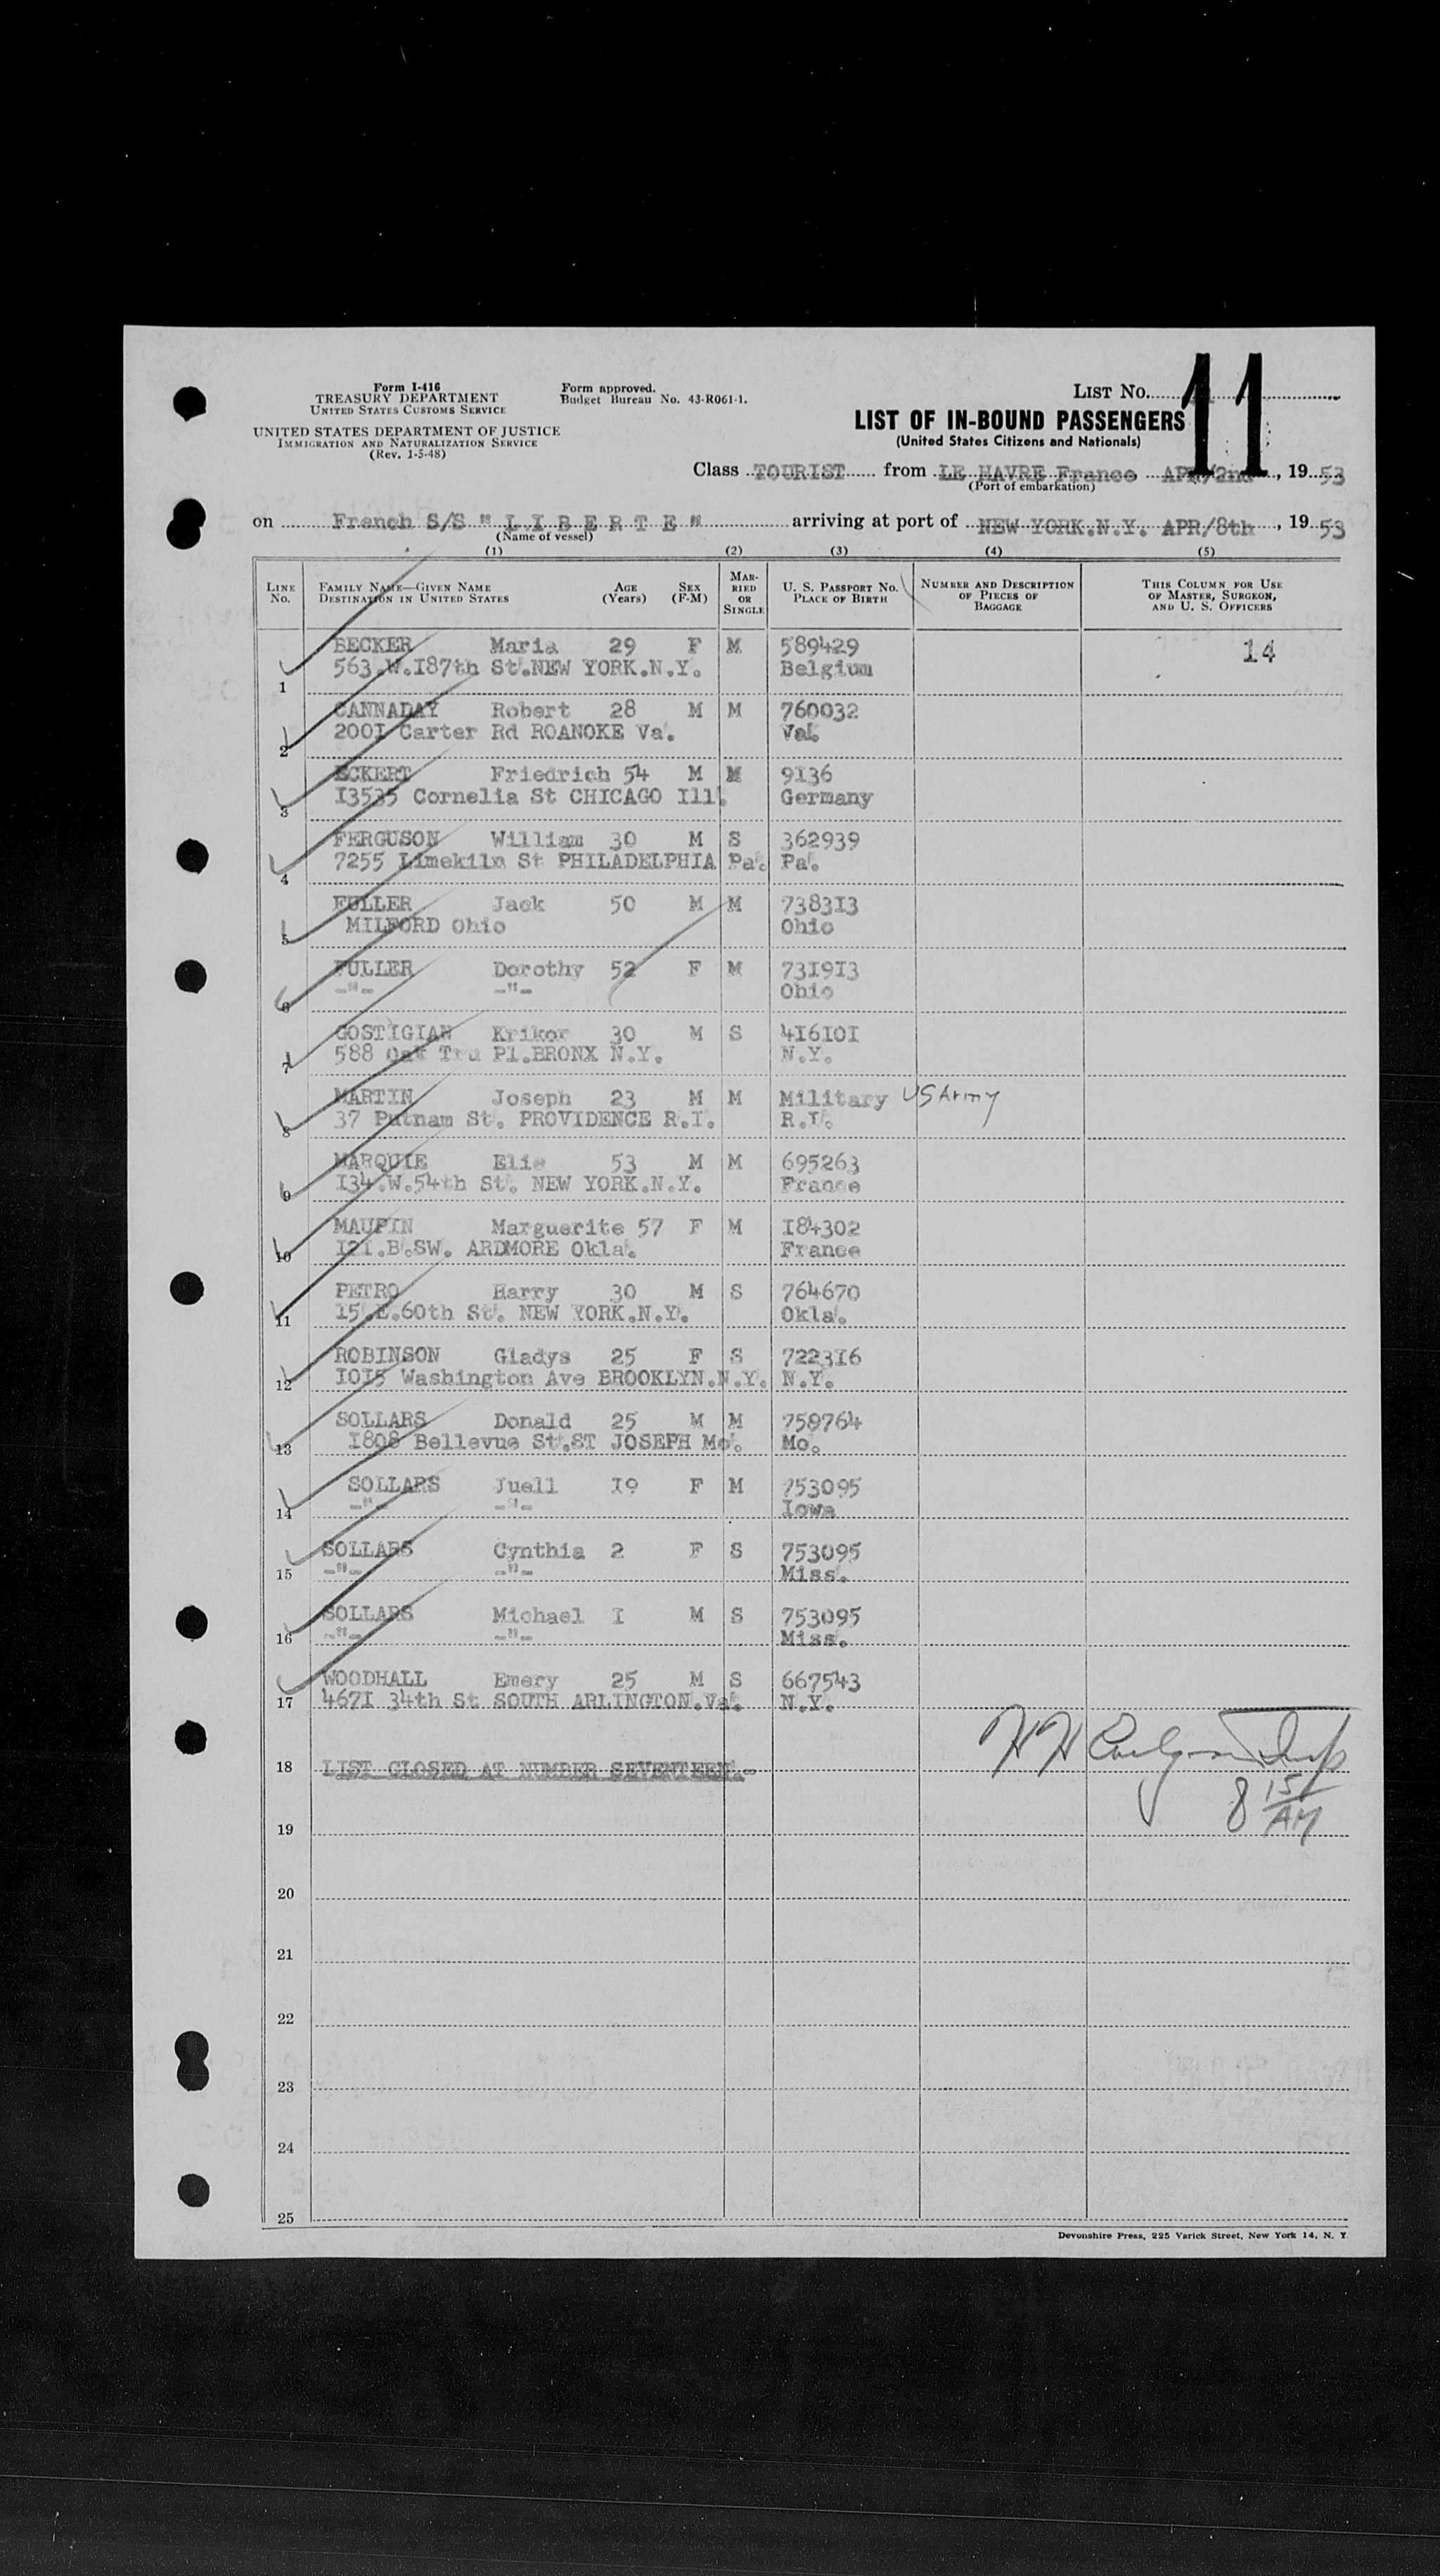 Form I-416
TREASURY DEPARTMENT
UNITED STATES CUSTOMS SERVICE
UNITED STATES DEPARTMENT OF JUSTICE
IMMIGRATION AND NATURALIZATION SERVICE
(Rev. 1-5-48)
Form approved.
Budget Bureau No. 43-R061-1.
LIST No. 11
LIST OF IN-BOUND PASSENGERS
(United States Citizens and Nationals)
Class TOURIST from LE HAVRE France APR/2nd, 19 53
(Port of embarkation)
on French S/S "LIBERTE" arriving at port of NEW YORK.N.Y. APR/8th, 19 53
(Name of vessel)
(1) (2) (3) (4) (5)
LINE No. FAMILY NAME—GIVEN NAME DESTINATION IN UNITED STATES AGE (Years) SEX (F-M) MARRIED OR SINGLE U. S. PASSPORT No. PLACE OF BIRTH NUMBER AND DESCRIPTION OF PIECES OF BAGGAGE THIS COLUMN FOR USE OF MASTER, SURGEON, AND U. S. OFFICERS
BECKER Maria 29 F M 589429 14
1 563.W.187th St.NEW YORK.N.Y. Belgium
CANNADAY Robert 28 M M 760032
2 2001 Carter Rd ROANOKE Va. Va.
ECKERT Friedrich 54 M M 9136
3 13535 Cornelia St CHICAGO Ill. Germany
FERGUSON William 30 M S 362939
4 7255 Limekiln St PHILADELPHIA Pa. Pa.
FULLER Jack 50 M M 738313
5 MILFORD Ohio Ohio
FULLER Dorothy 52 F M 731913
6 -"- -"- Ohio
GOSTIGIAN Krikor 30 M S 416101
7 588 Oak Tru Pl.BRONX N.Y. N.Y.
MARTIN Joseph 23 M M Military US Army
8 37 Putnam St. PROVIDENCE R.I. R.I.
MARQUIE Elie 53 M M 695263
9 134.W.54th St. NEW YORK.N.Y. France
MAUPIN Marguerite 57 F M 184302
10 121.B.SW. ARDMORE Okla. France
PETRO Harry 30 M S 764670
11 15.E.60th St. NEW YORK.N.Y. Okla.
ROBINSON Gladys 25 F S 722316
12 1015 Washington Ave BROOKLYN.N.Y. N.Y.
SOLLARS Donald 25 M M 758764
13 1808 Bellevue St.ST JOSEPH Mo. Mo.
SOLLARS Juell 19 F M 753095
14 -"- -"- Iowa
SOLLARS Cynthia 2 F S 753095
15 -"- -"- Miss.
SOLLARS Michael 1 M S 753095
16 -"- -"- Miss.
WOODHALL Emery 25 M S 667543
17 4671 34th St SOUTH ARLINGTON.Va. N.Y.
18 LIST CLOSED AT NUMBER SEVENTEEN.-
8 15/AM
19
20
21
22
23
24
25
Devonshire Press, 225 Varick Street, New York 14, N. Y.